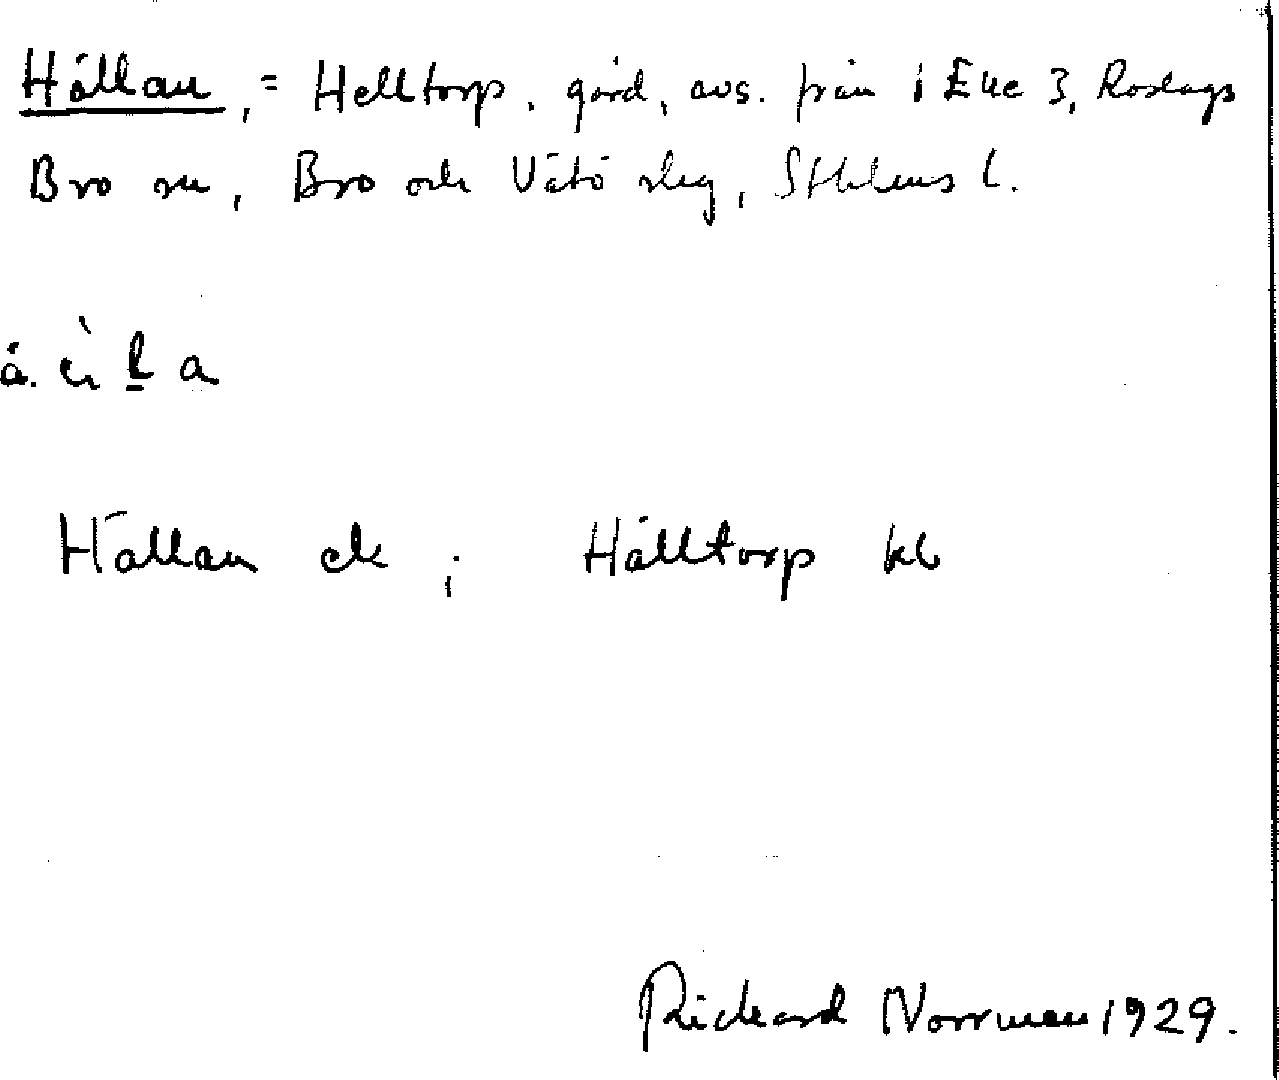 Hällan, = Helltorp, gård, avs. från 1 Ene 3, Roslags
Bro sn, Bro och Vätö slg, Sthlms l.
Hällan ek ; Hälltorp kb
Richard Norrman 1929.